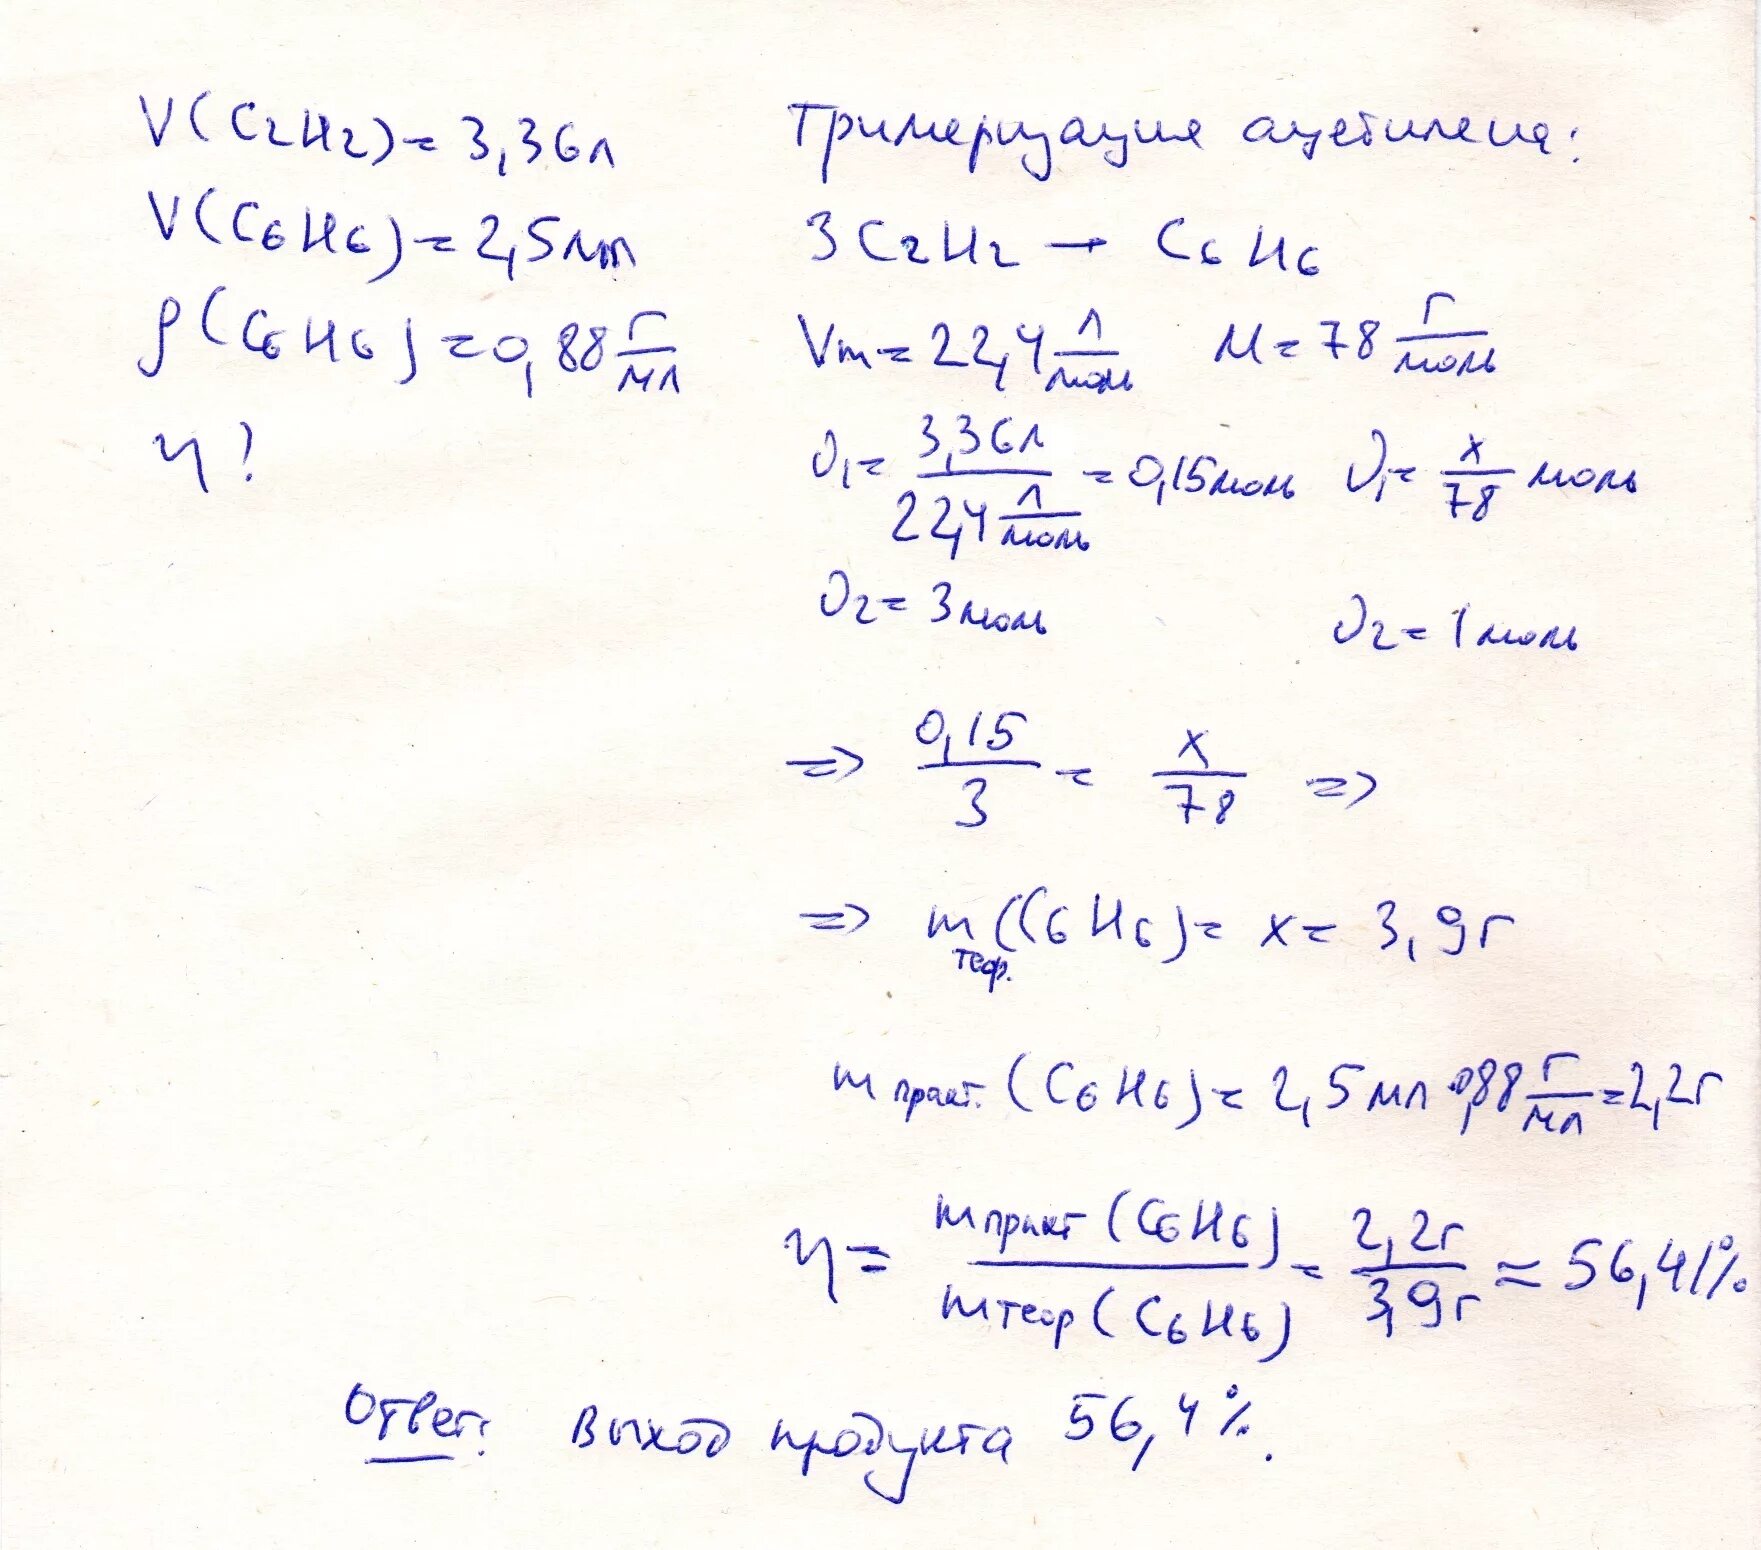 V(C₂H₂) = 3,36л
V(C₆H₆) = 2,5мл
ρ(C₆H₆) = 0,88 г/мл
η?
Тримеризация ацетилена:
3C₂H₂ → C₆H₆
Vm = 22,4 л/моль M = 78 г/моль
ν₁ = 3,36л / 22,4 л/моль = 0,15моль ν₁ = x/78 моль
ν₂ = 3моль ν₂ = 1моль
=> 0,15/3 = x/78 =>
=> m теор. (C₆H₆) = x = 3,9г
m практ. (C₆H₆) = 2,5мл · 0,88 г/мл = 2,2г
η = m практ (C₆H₆) / m теор (C₆H₆) = 2,2г / 3,9г ≈ 56,41%
Ответ: выход продукта 56,4%.